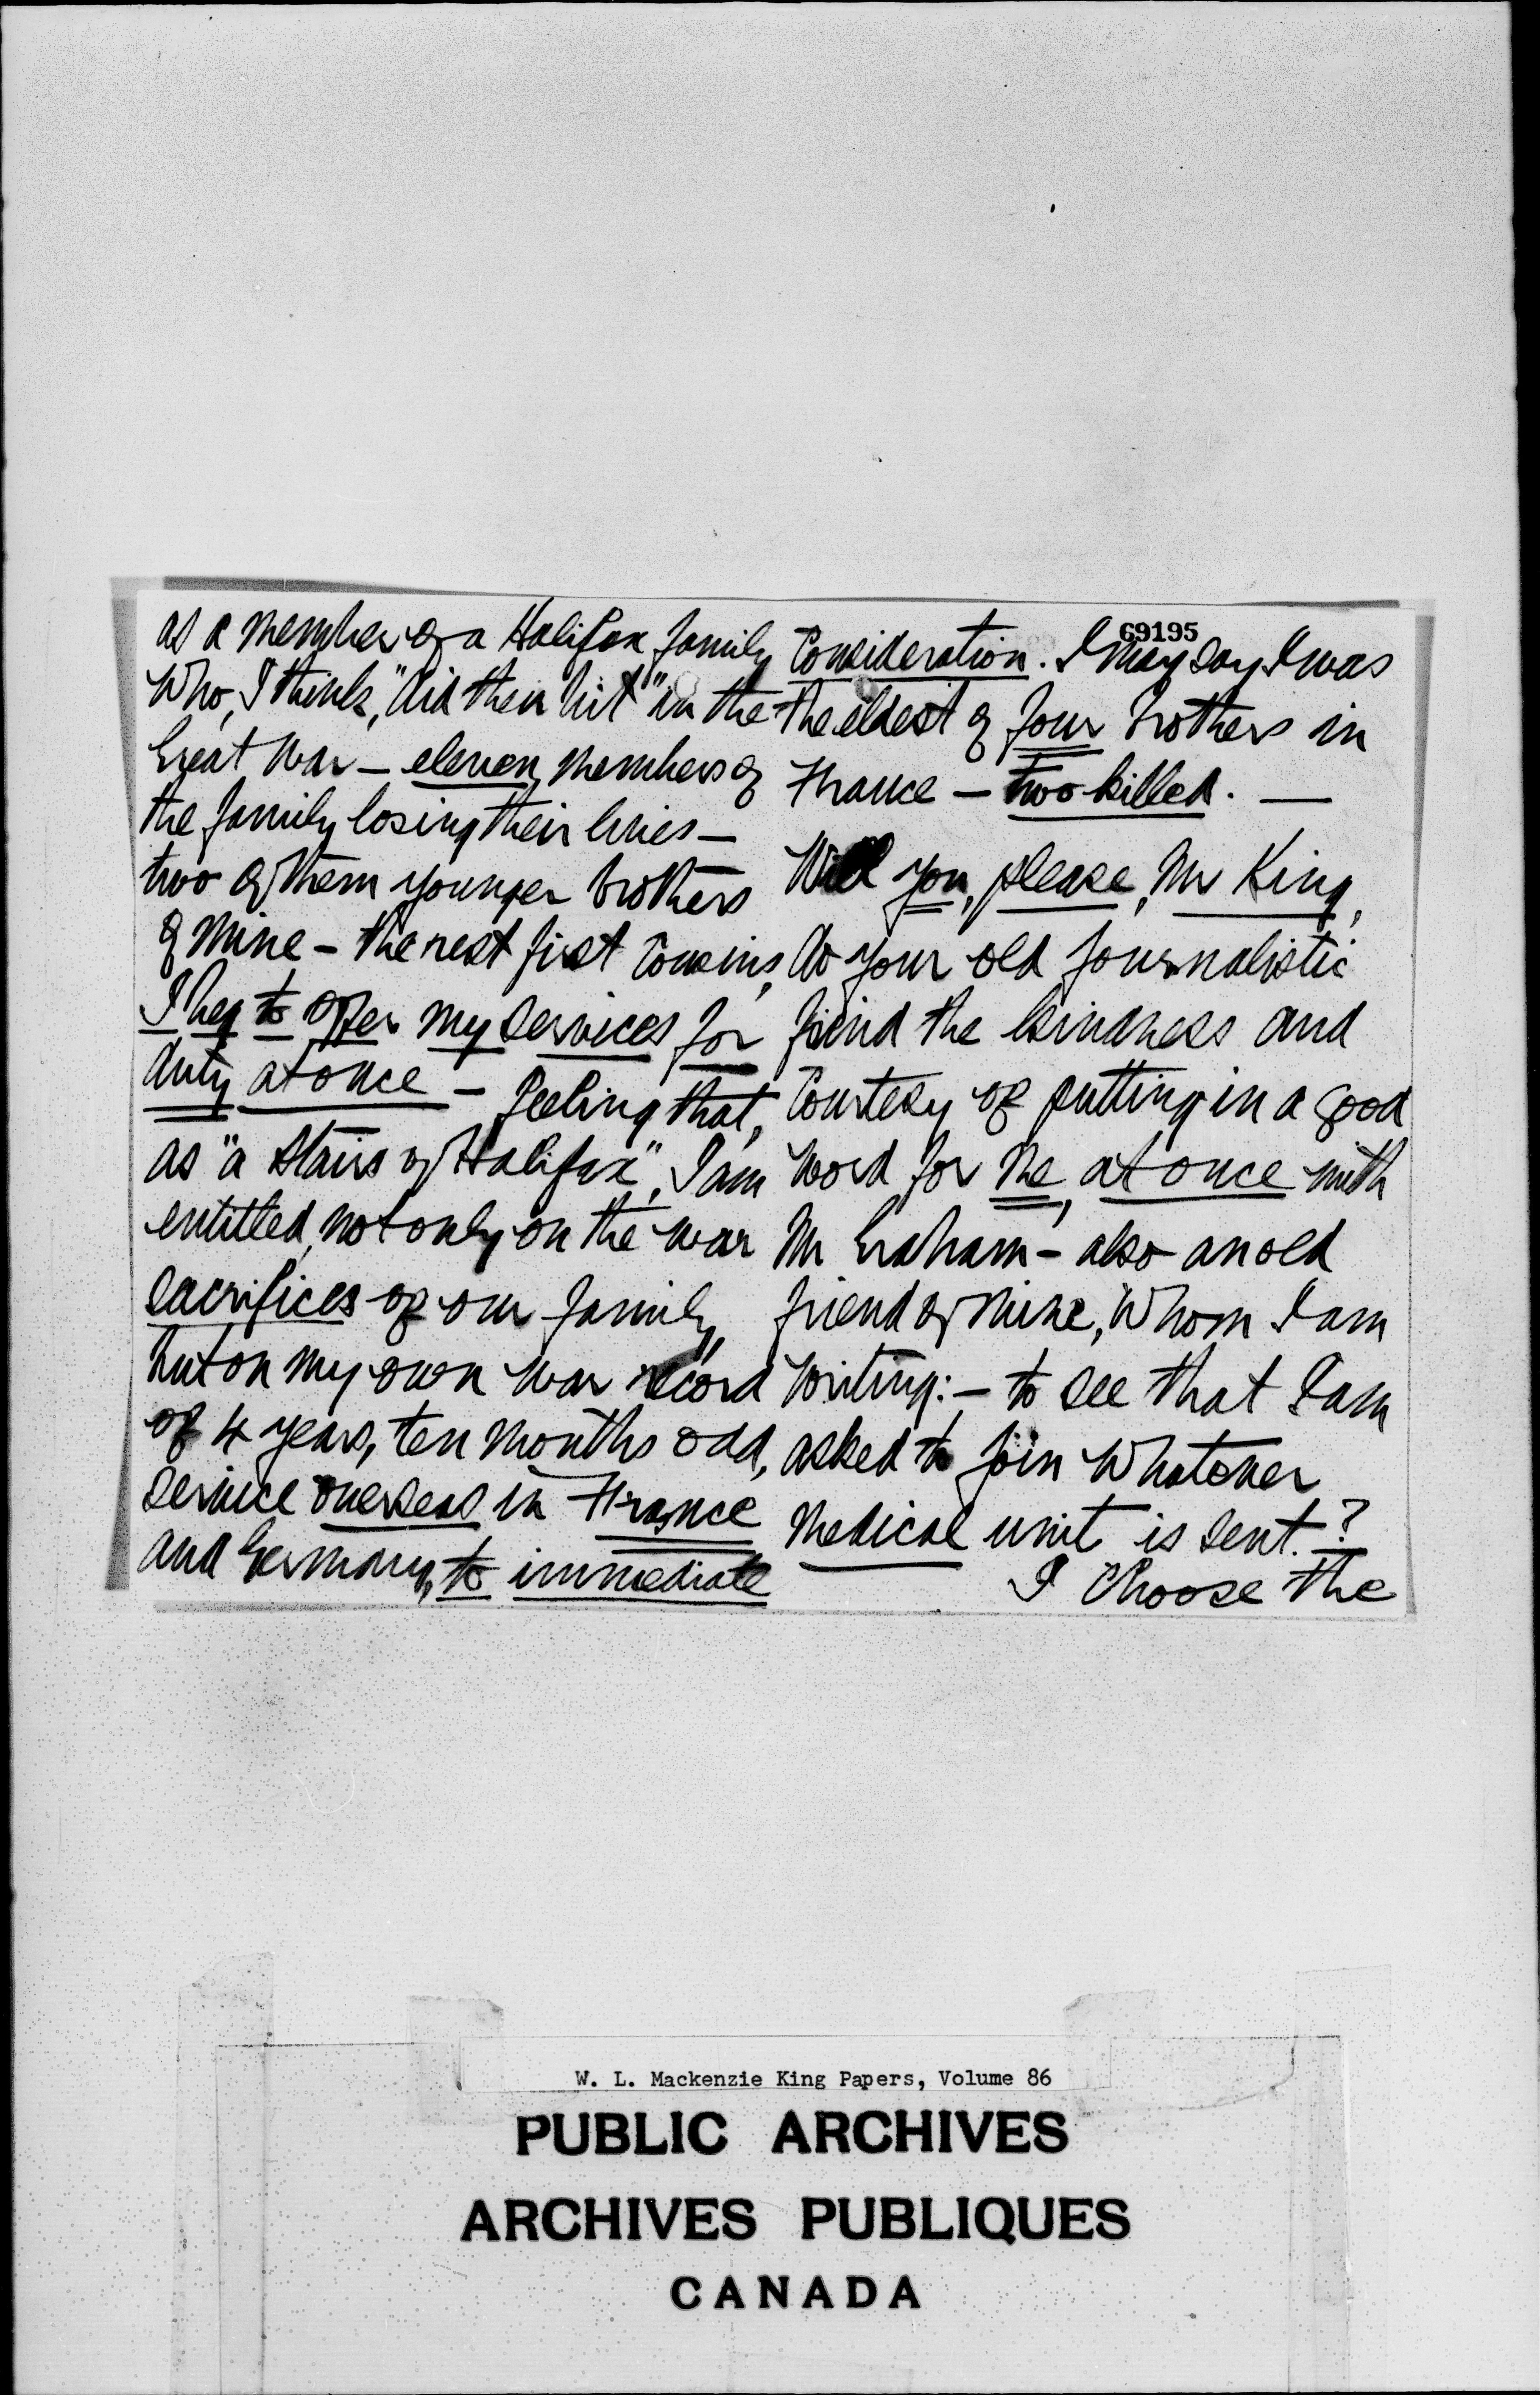 as a member of a Halifax family
who, I think, "did their bit" in the
Great War — eleven members of
the family losing their lives —
two of them younger brothers
of mine — the rest first cousins,
I beg to offer my services for
duty at once — feeling that,
as "a Stairs of Halifax", I am
entitled, not only on the war
sacrifices of our family,
but on my own war record
of 4 years, ten months odd,
service overseas in France
and Germany, to immediate
69195
consideration. I may say I was
the eldest of four brothers in
France — two killed. —
Will you, please, Mr King,
do your old journalistic
friend the kindness and
courtesy of putting in a good
word for me, at once with
Mr Graham — also an old
friend of mine, whom I am
writing: — to see that I am
asked to join whatever
medical unit is sent.?
I choose the
W. L. Mackenzie King Papers, Volume 86
PUBLIC ARCHIVES
ARCHIVES PUBLIQUES
CANADA